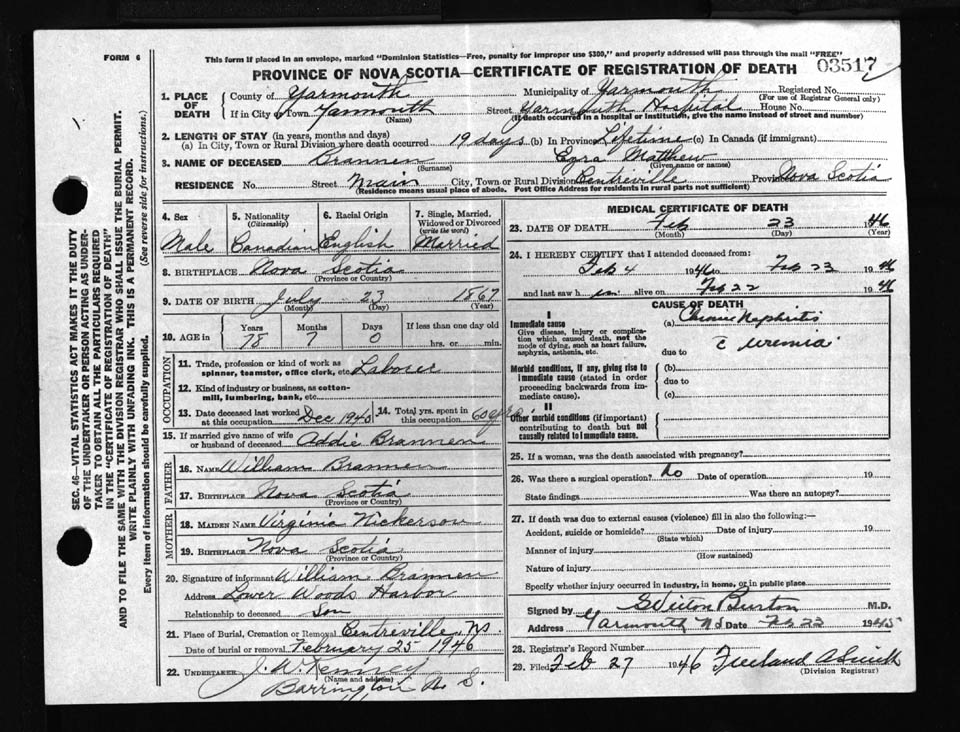 This form if placed in an envelope, marked "Dominion Statistics—Free, penalty for improper use $300," and properly addressed will pass through the mail "FREE"
FORM 6
PROVINCE OF NOVA SCOTIA—CERTIFICATE OF REGISTRATION OF DEATH
03517
1. PLACE OF DEATH
County of Yarmouth Municipality of Yarmouth Registered No.
(For use of Registrar General only)
If in City or Town Yarmouth Street Yarmouth Hospital House No.
(Name) (If death occurred in a hospital or institution, give the name instead of street and number)
2. LENGTH OF STAY (in years, months and days)
(a) In City, Town or Rural Division where death occurred 19 days (b) In Province Lifetime (c) In Canada (if immigrant)
3. NAME OF DECEASED Brannen Ezra Matthew
(Surname) (Given name or names)
RESIDENCE No. Street Main City, Town or Rural Division Centreville Province Nova Scotia
(Residence means usual place of abode. Post Office Address for residents in rural parts not sufficient)
4. Sex Male
5. Nationality (Citizenship) Canadian
6. Racial Origin English
7. Single, Married, Widowed or Divorced (write the word) Married
8. BIRTHPLACE Nova Scotia
(Province or Country)
9. DATE OF BIRTH July 23 1867
(Month) (Day) (Year)
10. AGE in Years 78 Months 7 Days 0 If less than one day old hrs. or min.
OCCUPATION
11. Trade, profession or kind of work as spinner, teamster, office clerk, etc. Laborer
12. Kind of industry or business, as cotton-mill, lumbering, bank, etc.
13. Date deceased last worked at this occupation Dec 1945 14. Total yrs. spent in this occupation 60 yrs.
15. If married give name of wife or husband of deceased Addie Brannen
FATHER
16. NAME William Brannen
17. BIRTHPLACE Nova Scotia
(Province or Country)
MOTHER
18. MAIDEN NAME Virginia Nickerson
19. BIRTHPLACE Nova Scotia
(Province or Country)
20. Signature of informant William Brannen
Address Lower Woods Harbor
Relationship to deceased Son
21. Place of Burial, Cremation or Removal Centreville, NS.
Date of burial or removal February 25 1946
22. UNDERTAKER J. W. Kenney
(Name and address)
Barrington N. S.
MEDICAL CERTIFICATE OF DEATH
23. DATE OF DEATH Feb 23 1946
(Month) (Day) (Year)
24. I HEREBY CERTIFY that I attended deceased from:
Feb 4 1946 to Feb 23 1946
and last saw h im alive on Feb 22 1946
CAUSE OF DEATH
I
Immediate cause
Give disease, injury or complication which caused death, not the mode of dying, such as heart failure, asphyxia, asthenia, etc.
(a) Chronic Nephritis
due to c uremia
Morbid conditions, if any, giving rise to immediate cause (stated in order proceeding backwards from immediate cause).
(b)
due to
(c)
II
Other morbid conditions (if important) contributing to death but not causally related to immediate cause.
25. If a woman, was the death associated with pregnancy?
26. Was there a surgical operation? No Date of operation 19
State findings Was there an autopsy?
27. If death was due to external causes (violence) fill in also the following:—
Accident, suicide or homicide? Date of injury 19
(State which)
Manner of injury
(How sustained)
Nature of injury
Specify whether injury occurred in industry, in home, or in public place
Signed by Burton M.D.
Address Yarmouth NS Date Feb 23 1945
28. Registrar's Record Number
29. Filed Feb 27 1946 Freeland A Smith
(Division Registrar)
SEC. 46—VITAL STATISTICS ACT MAKES IT THE DUTY
OF THE UNDERTAKER OR PERSON ACTING AS UNDER-
TAKER TO OBTAIN ALL THE PARTICULARS REQUIRED
IN THE "CERTIFICATE OF REGISTRATION OF DEATH"
AND TO FILE THE SAME WITH THE DIVISION REGISTRAR WHO SHALL ISSUE THE BURIAL PERMIT.
WRITE PLAINLY WITH UNFADING INK. THIS IS A PERMANENT RECORD.
Every item of information should be carefully supplied. (See reverse side for instructions.)